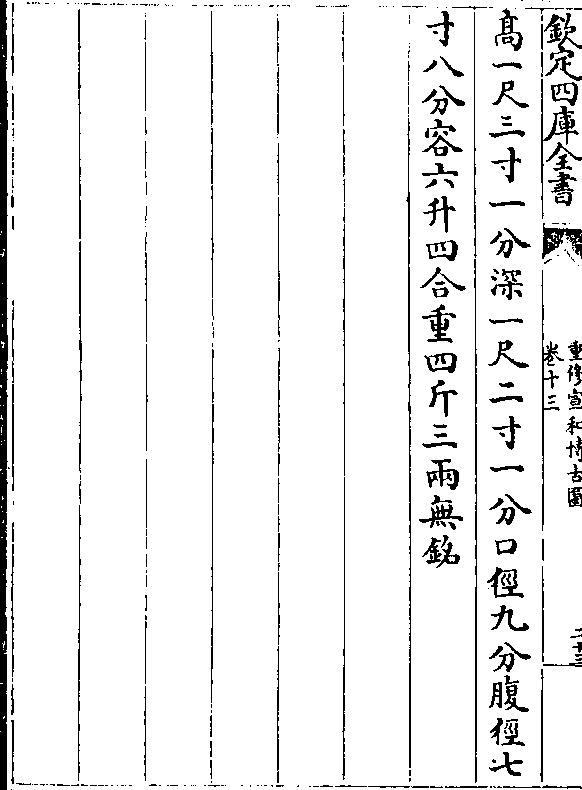 欽定四庫全書
重修宣和博古圖
卷十三
二十三
高一尺三寸一分深一尺二寸一分口徑九分腹徑七
寸八分容六升四合重四斤三兩無銘